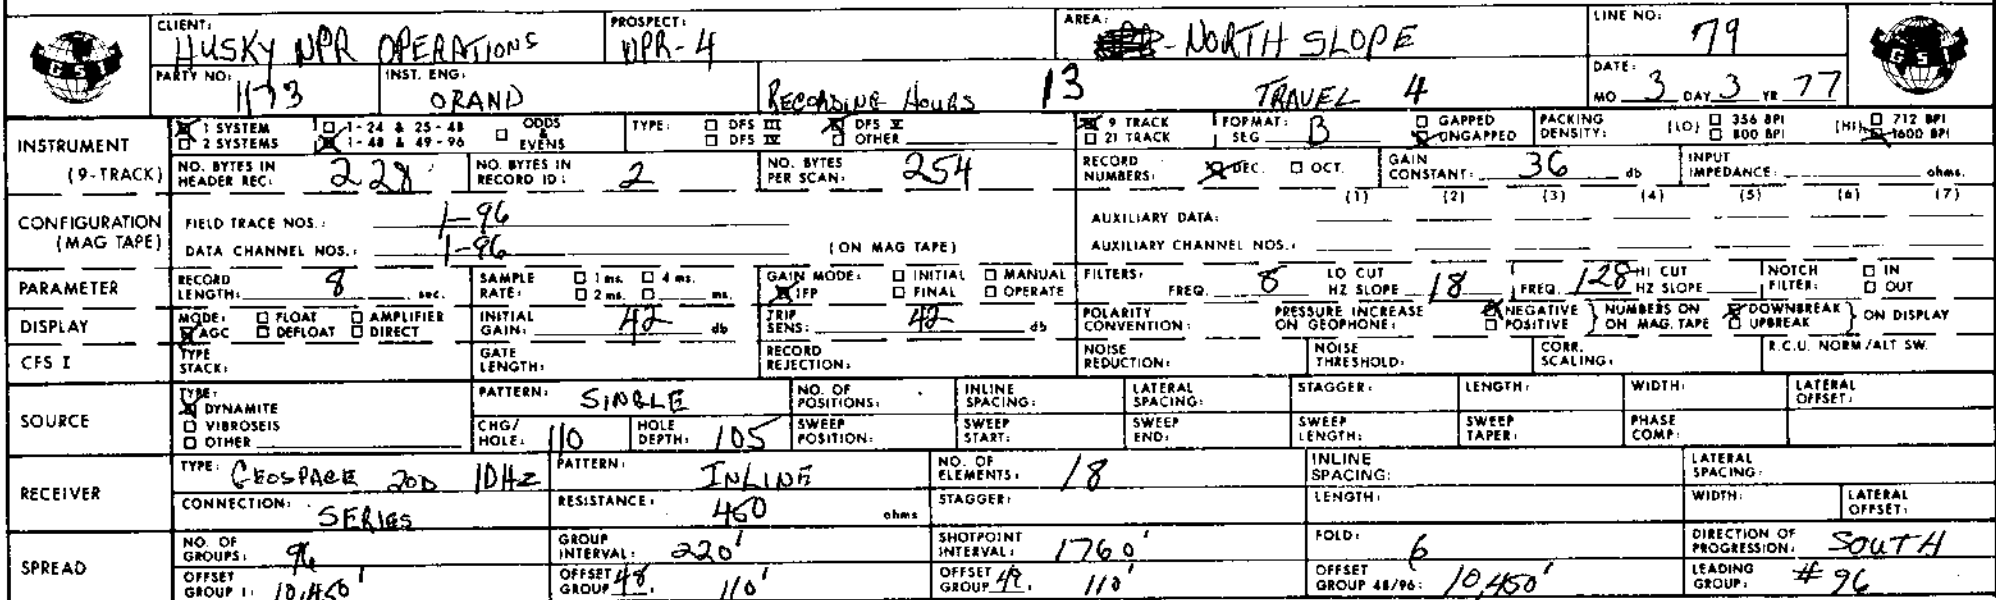 CLIENT: HUSKY NPR OPERATIONS PROSPECT: NPR-4 AREA: NORTH SLOPE LINE NO: 79
GSI GSI
PARTY NO: 1173 INST. ENG: ORAND RECORDING HOURS 13 TRAVEL 4 DATE: MO 3 DAY 3 YR 77
INSTRUMENT 1 SYSTEM 1-24 & 25-48 ODDS & EVENS TYPE: DFS III DFS V 9 TRACK FORMAT: SEG B GAPPED PACKING DENSITY: (LO) 356 BPI (HI) 712 BPI
2 SYSTEMS 1-48 & 49-96 DFS IV OTHER 21 TRACK UNGAPPED 800 BPI 1600 BPI
(9-TRACK) NO. BYTES IN HEADER REC: 228 NO. BYTES IN RECORD ID: 2 NO. BYTES PER SCAN: 254 RECORD NUMBERS: DEC. OCT. GAIN CONSTANT: 36 db INPUT IMPEDANCE: ohms.
(1) (2) (3) (4) (5) (6) (7)
CONFIGURATION (MAG TAPE) FIELD TRACE NOS.: 1-96 AUXILIARY DATA:
DATA CHANNEL NOS.: 1-96 (ON MAG TAPE) AUXILIARY CHANNEL NOS.:
PARAMETER RECORD LENGTH: 8 sec. SAMPLE RATE: 1 ms. 4 ms. 2 ms. ms. GAIN MODE: INITIAL MANUAL IFP FINAL OPERATE FILTERS: FREQ. 8 LO CUT HZ SLOPE 18 FREQ. 128 HI CUT HZ SLOPE NOTCH FILTER: IN OUT
DISPLAY MODE: FLOAT AMPLIFIER AGC DEFLOAT DIRECT INITIAL GAIN: 42 db TRIP SENS: 42 db POLARITY CONVENTION: PRESSURE INCREASE ON GEOPHONE: NEGATIVE POSITIVE NUMBERS ON ON MAG. TAPE DOWNBREAK UPBREAK ON DISPLAY
CFS I TYPE STACK: GATE LENGTH: RECORD REJECTION: NOISE REDUCTION: NOISE THRESHOLD: CORR. SCALING: R.C.U. NORM/ALT SW.
SOURCE TYPE: DYNAMITE VIBROSEIS OTHER PATTERN: SINGLE NO. OF POSITIONS: INLINE SPACING: LATERAL SPACING: STAGGER: LENGTH: WIDTH: LATERAL OFFSET:
CHG/HOLE: 110 HOLE DEPTH: 105 SWEEP POSITION: SWEEP START: SWEEP END: SWEEP LENGTH: SWEEP TAPER: PHASE COMP:
RECEIVER TYPE: GEOSPACE 20D 10Hz PATTERN: INLINE NO. OF ELEMENTS: 18 INLINE SPACING: LATERAL SPACING:
CONNECTION: SERIES RESISTANCE: 450 ohms STAGGER: LENGTH: WIDTH: LATERAL OFFSET:
SPREAD NO. OF GROUPS: 96 GROUP INTERVAL: 220' SHOTPOINT INTERVAL: 1760' FOLD: 6 DIRECTION OF PROGRESSION: SOUTH
OFFSET GROUP 1: 10,450' OFFSET GROUP 48: 110' OFFSET GROUP 49: 110' OFFSET GROUP 48/96: 10,450' LEADING GROUP: #96